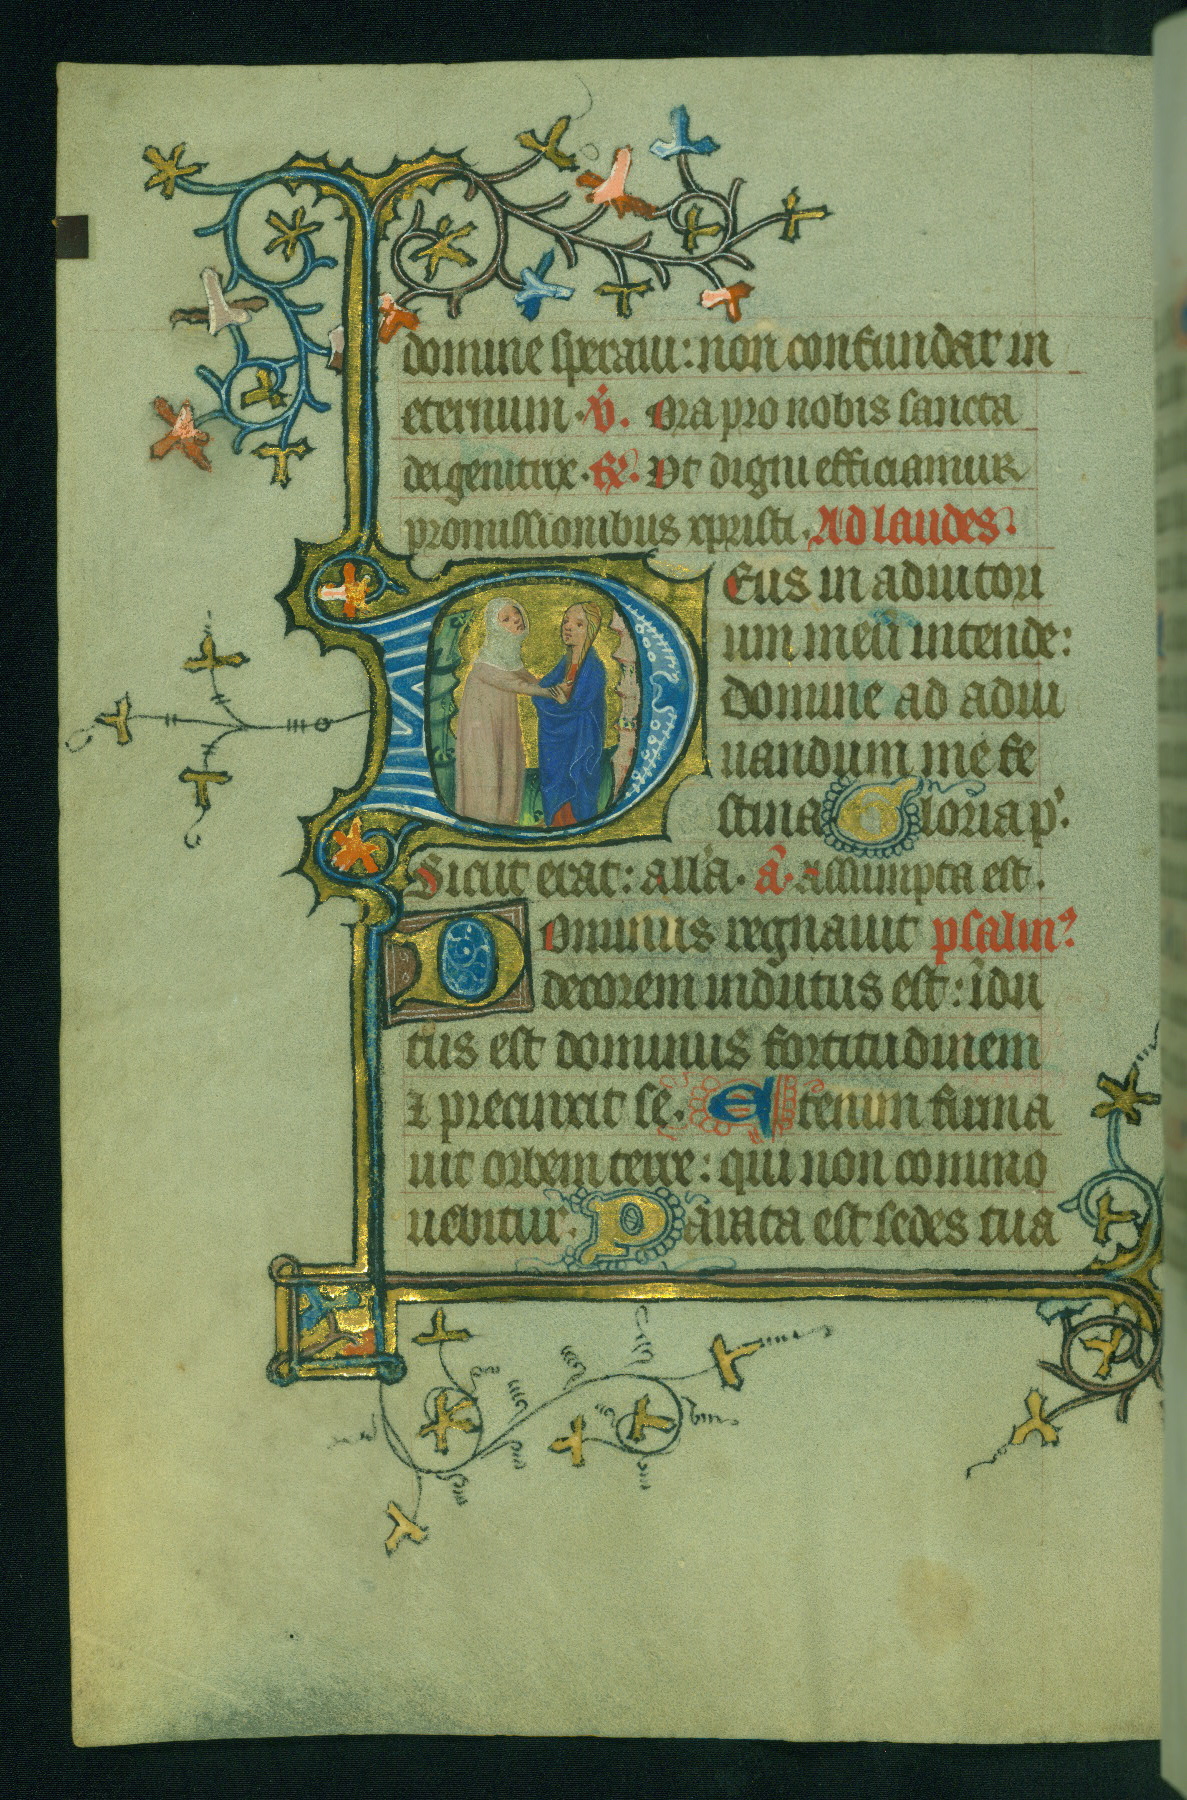 domine speraui: non confundar in
eternum. V̉. Ora pro nobis sancta
dei genitrix. R̷. Ut digni efficiamur
promissionibus xpristi. Ad laudes.
Deus in adiutori
um meū intende:
domine ad adiu
uandum me fe
stina Gloria p'.
Sicut erat: all'a. a᷃. Assumpta est.
Dominus regnauit psalm᷒.
decorem indutus est: īdu
tus est dominus fortitudinem
⁊ precinxit se. Etenim firma
uit orbem terre: qui non commo
uebitur. Parata est sedes tua